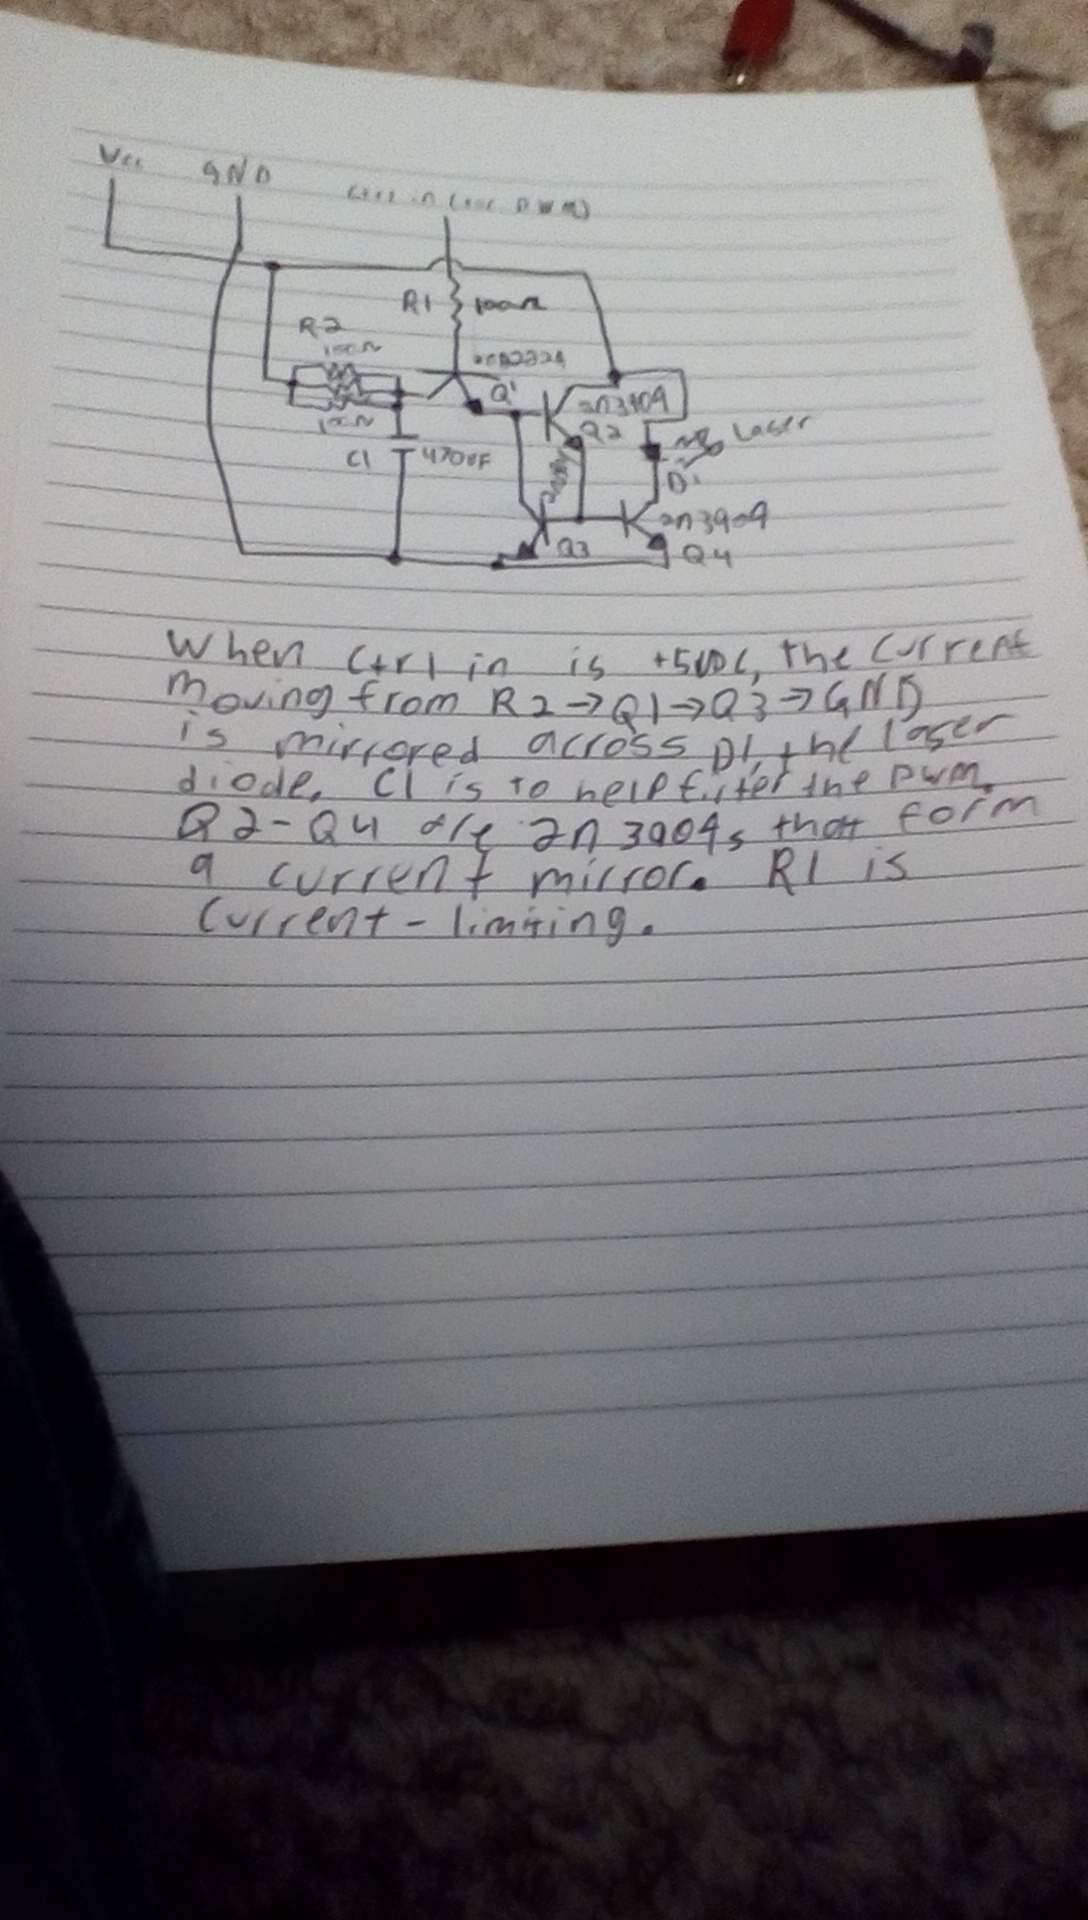 Vcc GND
Ctrl in (or PWM)
R1 100Ω
R2
100Ω
Q1
2n3904
100Ω
Q2
Laser
C1 470uF
D1
2n3904
Q3
Q4
When Ctrl in is +5VDC, the current
moving from R2→Q1→Q3→GND
is mirrored across D1, the laser
diode. C1 is to help filter the PWM.
Q2-Q4 are 2n3904s that form
a current mirror. R1 is
current-limiting.